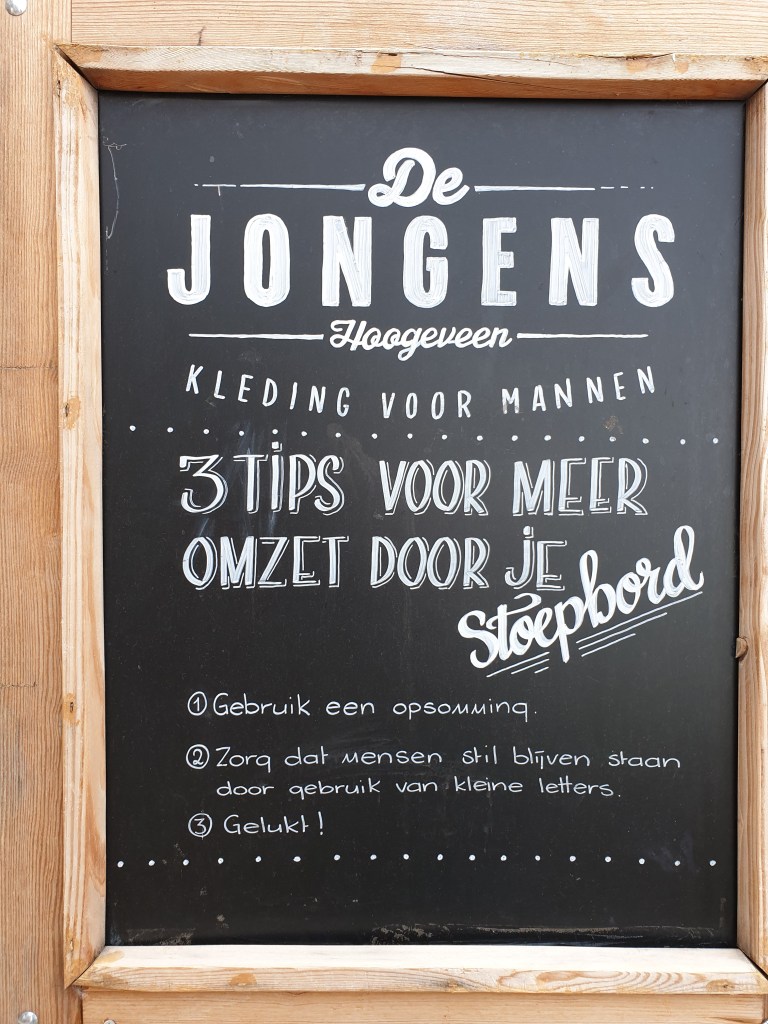 De
JONGENS
Hoogeveen
KLEDING VOOR MANNEN
3 TIPS VOOR MEER
OMZET DOOR JE
Stoepbord
① Gebruik een opsomming.
② Zorg dat mensen stil blijven staan
door gebruik van kleine letters.
③ Gelukt!